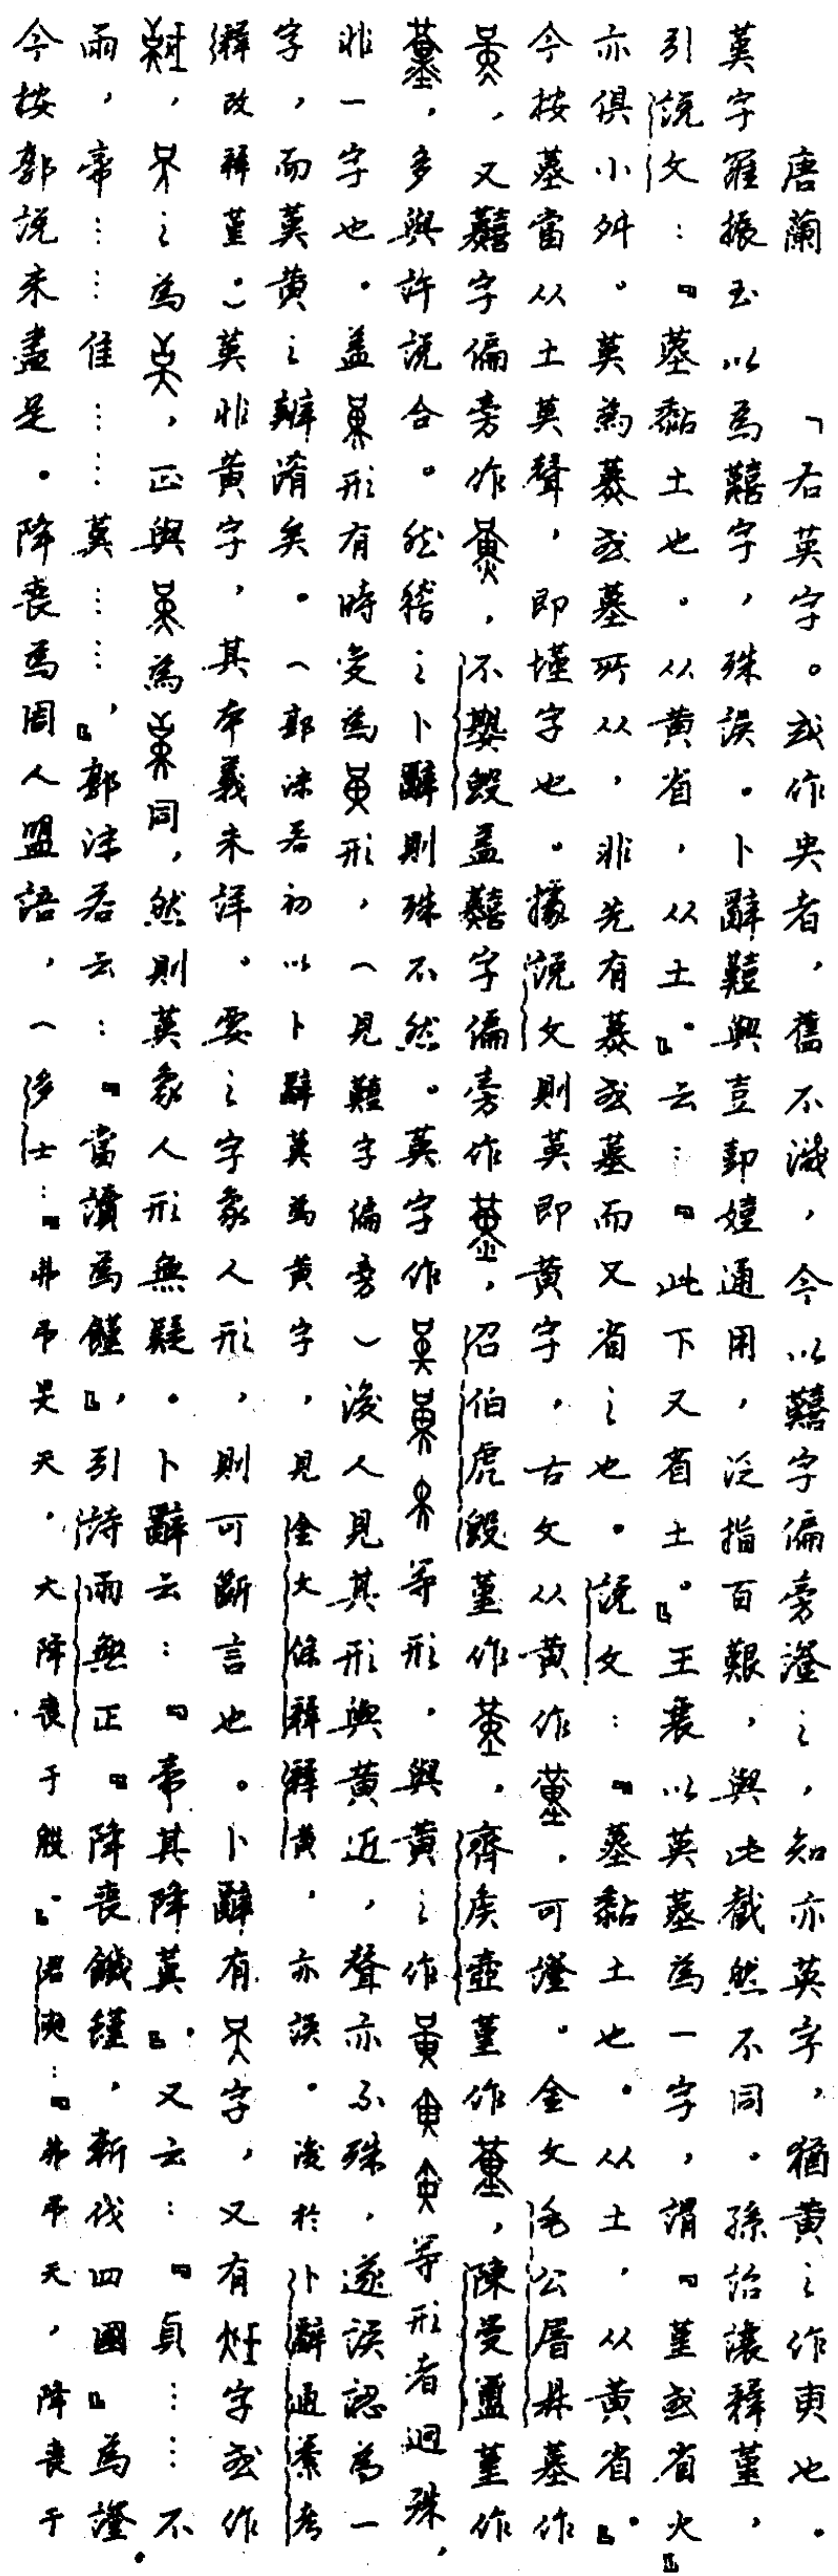 唐蘭　「右𦰩字。或作㚇者，舊不識，今以囏字偏旁證之，知亦𦰩字，猶黃之作寅也。
𦰩字羅振玉以為囏字，殊誤。卜辭囏與壴卽嬉通用，泛指百艱，與此截然不同。孫詒讓釋堇，
引說文：『堇黏土也。从黃省，从土』。云：『此下又省土』。王襄以𦰩堇為一字，謂『堇或省火』
亦俱小舛。𦰩為暵或堇所从，非先有暵或堇而又省之也。說文：『堇黏土也。从土，从黃省』。
今按堇當从土𦰩聲，即墐字也。據說文則𦰩即黃字，古文从黃作，可證。金文毛公㕌鼎堇作
，又囏字偏旁作，不𡢁𣪘蓋囏字偏旁作，召伯虎𣪘堇作，齊矦壺堇作，陳曼簠堇作
，多與許說合。然稽之卜辭則殊不然。𦰩字作等形，與黃之作等形者迥殊，
非一字也。蓋形有時變為形，（見囏字偏旁）後人見其形與黃近，聲亦不殊，遂誤認為一
字，而𦰩黃之辨淆矣。（郭沫若初以卜辭𦰩為黃字，見金文餘釋釋黃，亦誤。後於卜辭通纂考
釋改釋堇。）𦰩非黃字，其本義未詳。要之字象人形，則可斷言也。卜辭有字，又有字或作
，之為，正與為同，然則𦰩象人形無疑。卜辭云：『帝其降𦰩』。又云：『貞……不
雨，帝……隹……𦰩……』，郭沫若云：『當讀為饉』，引詩雨無正『降喪饑饉，斬伐四國』為證。
今按郭說未盡是。降喪為周人盟語，（多士：『弗弔旻天，大降喪于殷』。君奭：『弗弔天，降喪于